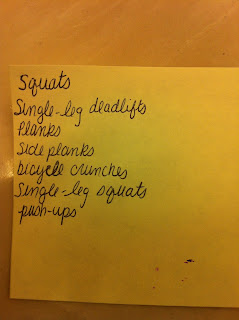 Squats
Single-leg deadlifts
Planks
Side planks
bicycle crunches
Single-leg squats
push-ups